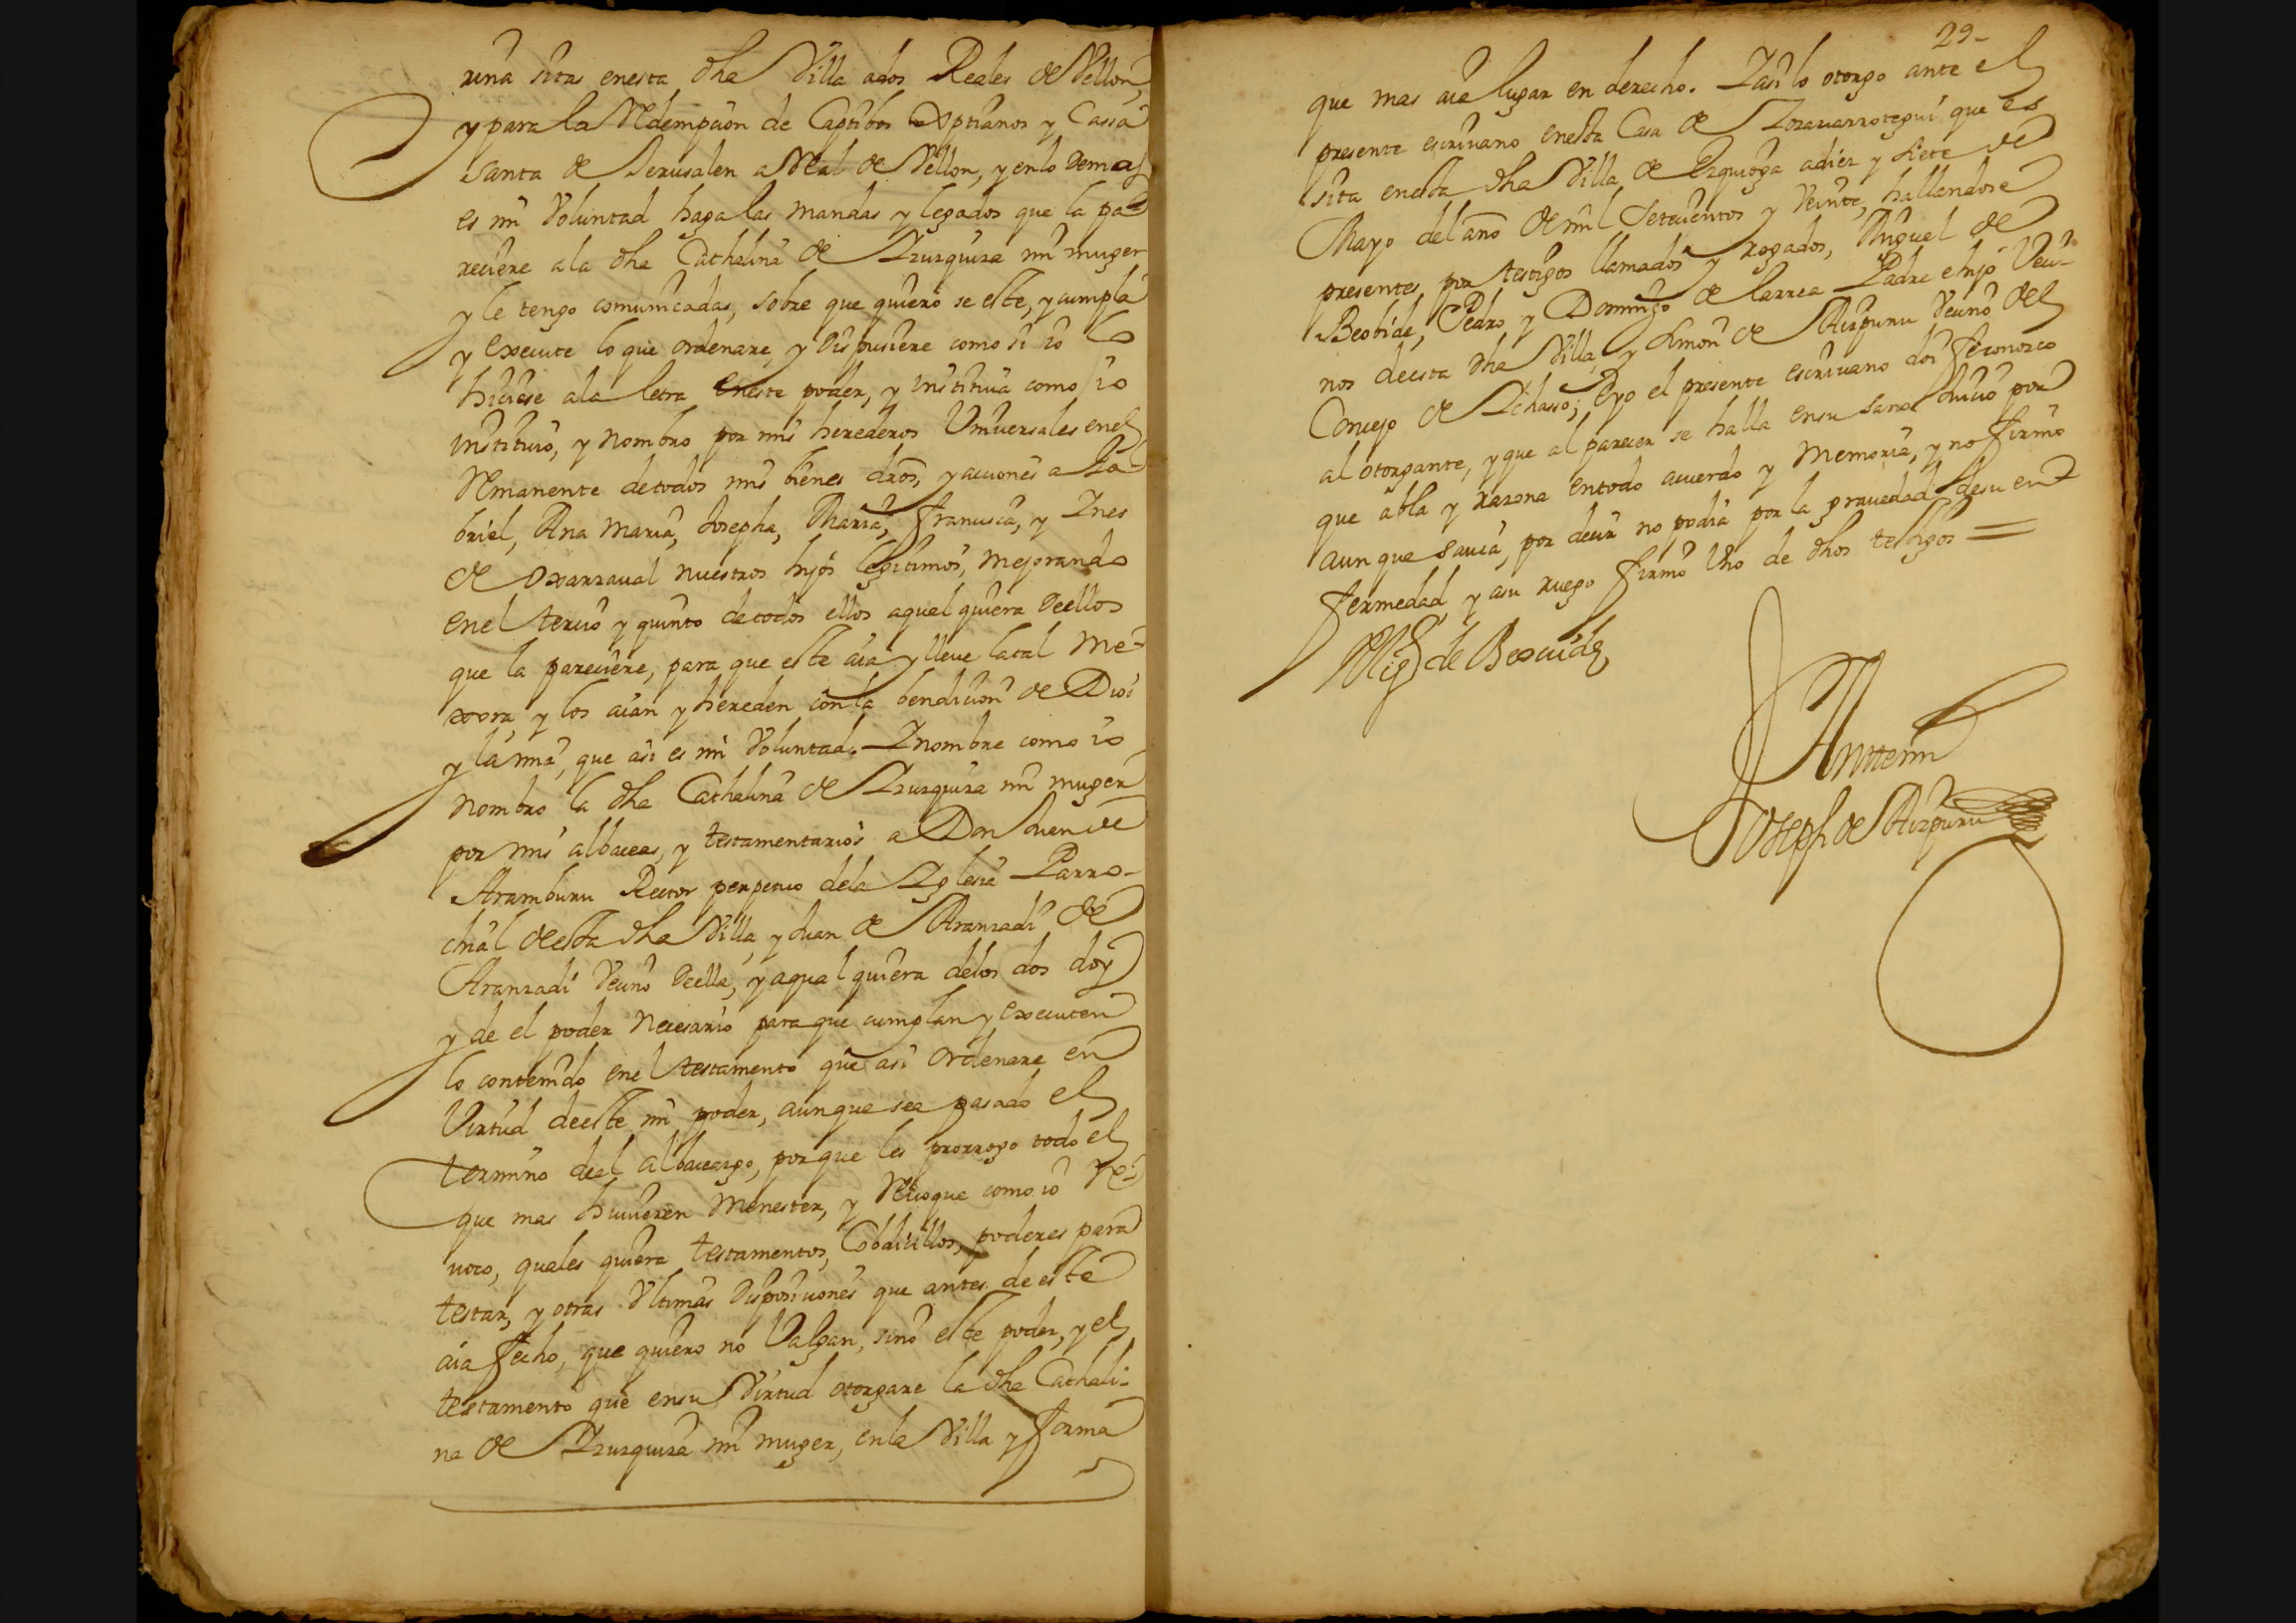 rina sitas enesta dha Villa ados Reales de Vellon,
y para la Redempcion de Captibos Xptianos y Cassa
santa de Jerusalen a Real de Vellon, y enlo demas
es mi Voluntad haga las mandas y legados que la pa-
reciere ala dha Cathalina de Izurquiza mi muger
y le tengo comunicadas, sobre que quiero se este, y cumpla
y execute lo que ordenare, y dispusiere como si io lo
hiciese ala letra eneste poder, y instituia como io
instituio, y nombro por mis herederos Universales enel
Remanente detodos mis bienes dros, y acciones a Ga-
briel, Ana Maria, Josepha, Maria, Francisca, y Ines
de Oxarraval nuestros hijos legitimos, mejorando
enel tercio y quinto detodos ellos aqual quiera deellos
que la pareciere, para que este aia y lleve latal me-
xora y los aian y hereden conla bendicion de Dios
y la mia, que asi es mi Voluntad. I nombre como io
nombro la dha Cathalina de Izurquiza mi muger
por mis albaceas, y testamentarios a Don Juan de
Aramburu Rector perpetuo dela Iglesia Parro-
chial deesta dha Villa, y Juan de Aranzadi de
Aranzadi Vecino deella, y aqual quiera delos dos doy
y de el poder necesario para que cumplan y executen
lo contenido enel testamento que asi ordenare en
Virtud deeste mi poder, aunque sea pasado el
termino deel albaceazgo, porque les prorrogo todo el
que mas huvieren menester, y Revoque como io re-
voco, quales quiera testamentos, Cobdicillos, poderes para
testar, y otras Ultimas disposiciones que antes de este
aia fecho, que quiero no Valgan, sino este poder, y el
testamento que ensu Virtud otorgare la dha Cathali-
na de Izurquiza mi muger, enla Villa y forma
29-
que mas aia lugar en derecho. I asi lo otorgo ante el
presente escrivano enesta Casa de Izozavarrotegui que es
sita enesta dha Villa de Ezquioga adiez y siete de
Mayo del año de mil Setecientos y Veinte, hallandose
presentes por testigos llamados y rogados, Miguel de
Beobide, Pedro y Domingo de Larrea Padre e hijo Veci-
nos deesta dha Villa, y Simon de Aizpuru Vecino del
Concejo de Ichasso; Eyo el presente escrivano doi fe conozco
al otorgante, y que al parecer se halla ensu sano Juicio por
que abla y razona entodo acuerdo y Memoria, y no firmo
aun que savia, por decir no podia por la gravedad desu en-
fermedad, y asu ruego firmo Uno de dhos testigos =
Migl de Beovide
Antte mi
Joseph de Aizpuru